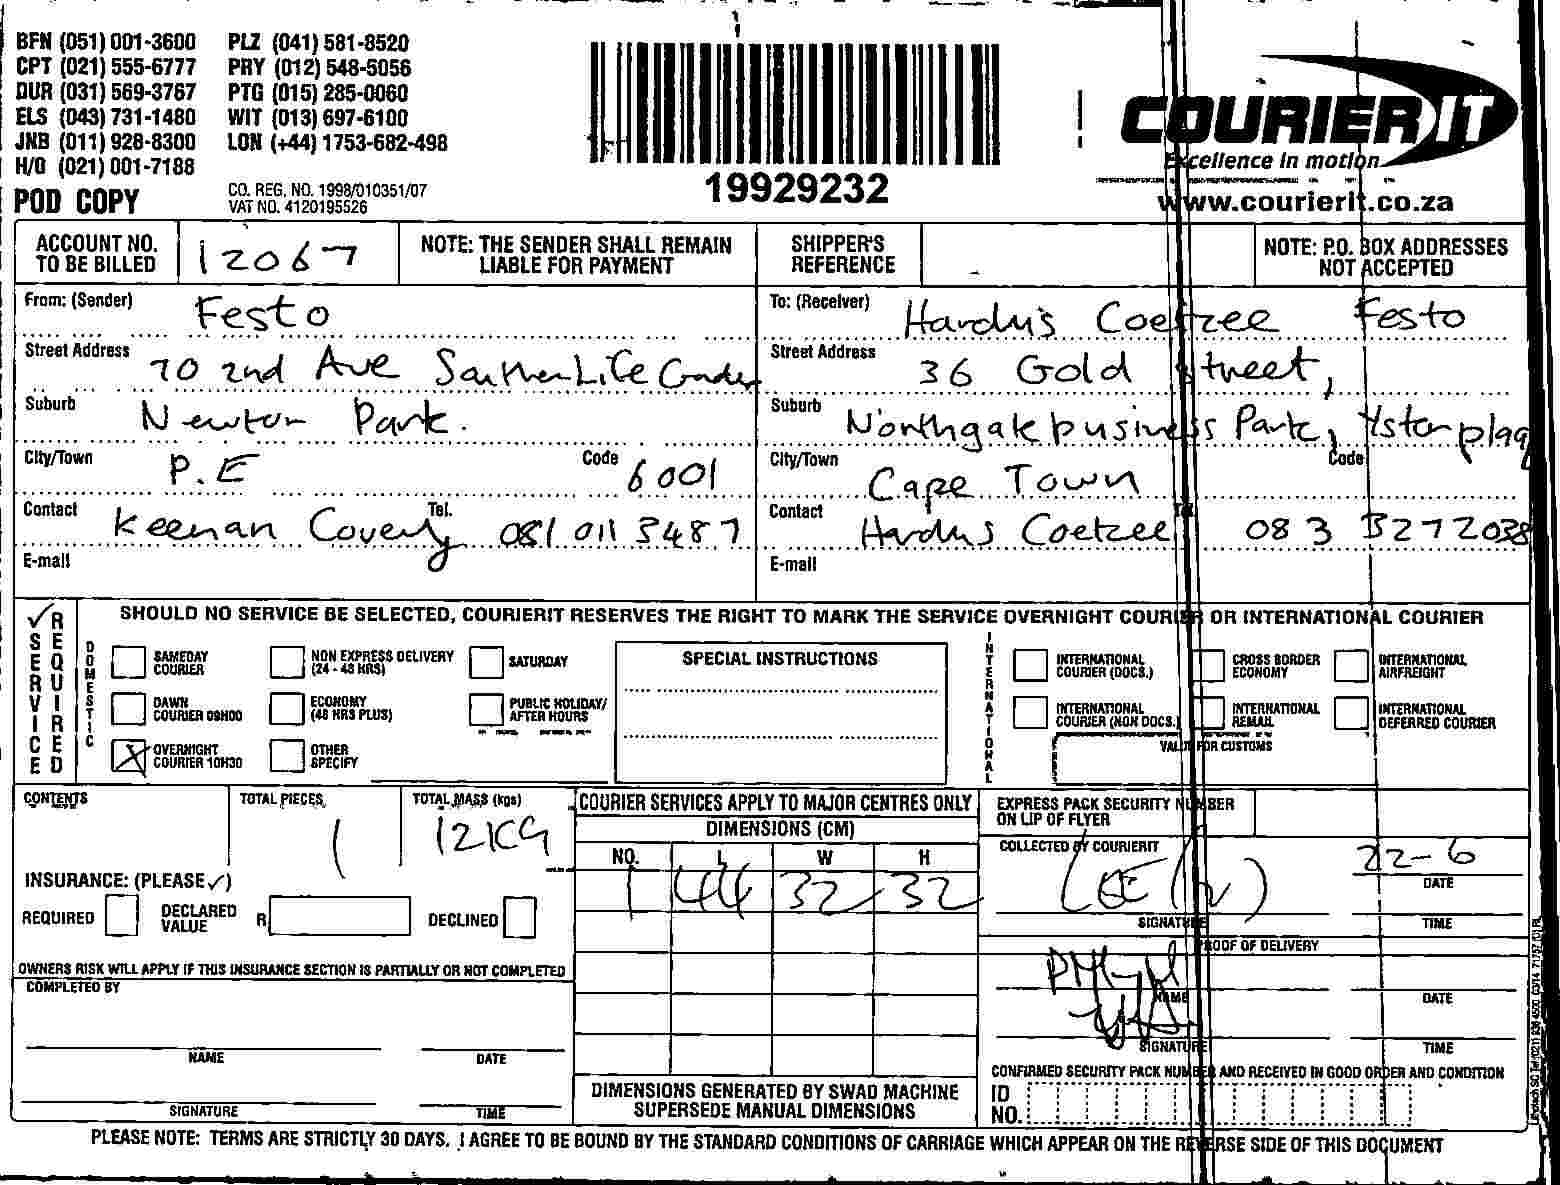 BFN (051) 001-3600 PLZ (041) 581-8520
CPT (021) 555-6777 PRY (012) 548-5056
DUR (031) 569-3767 PTG (015) 285-0060
ELS (043) 731-1480 WIT (013) 697-6100
JNB (011) 928-8300 LON (+44) 1753-682-498
H/O (021) 001-7188
POD COPY
CO. REG. NO. 1998/010351/07
VAT NO. 4120195526
19929232
COURIER IT
Excellence in motion
www.courierit.co.za
ACCOUNT NO. TO BE BILLED 12067
NOTE: THE SENDER SHALL REMAIN LIABLE FOR PAYMENT
SHIPPER'S REFERENCE
NOTE: P.O. BOX ADDRESSES NOT ACCEPTED
From: (Sender) Festo
Street Address 70 2nd Ave Southern Life
Suburb Newton Park.
City/Town P.E Code 6001
Contact Keenan Tel. 081 011 3487
E-mail
To: (Receiver) Hardus Coetzee Festo
Street Address 36 Gold Street,
Suburb Northgate business Park, Ysterplaa
City/Town Cape Town Code
Contact Hardus Coetzee Tel. 083 3272038
E-mail
SERVICE REQUIRED
SHOULD NO SERVICE BE SELECTED, COURIERIT RESERVES THE RIGHT TO MARK THE SERVICE OVERNIGHT COURIER OR INTERNATIONAL COURIER
DOMESTIC
SAMEDAY COURIER
NON EXPRESS DELIVERY (24 - 48 HRS)
SATURDAY
DAWN COURIER 09H00
ECONOMY (48 HRS PLUS)
PUBLIC HOLIDAY/ AFTER HOURS
OVERNIGHT COURIER 10H30
OTHER SPECIFY
SPECIAL INSTRUCTIONS
INTERNATIONAL
INTERNATIONAL COURIER (DOCS.)
CROSS BORDER ECONOMY
INTERNATIONAL AIRFREIGHT
INTERNATIONAL COURIER (NON DOCS.)
INTERNATIONAL REMAIL
INTERNATIONAL DEFERRED COURIER
VALUE FOR CUSTOMS
CONTENTS
TOTAL PIECES 1
TOTAL MASS (kgs) 12KG
INSURANCE: (PLEASE ✓)
REQUIRED DECLARED VALUE R DECLINED
OWNERS RISK WILL APPLY IF THIS INSURANCE SECTION IS PARTIALLY OR NOT COMPLETED
COMPLETED BY
NAME DATE
SIGNATURE TIME
COURIER SERVICES APPLY TO MAJOR CENTRES ONLY
DIMENSIONS (CM)
NO. L W H
1 44 32 32
DIMENSIONS GENERATED BY SWAD MACHINE
SUPERSEDE MANUAL DIMENSIONS
EXPRESS PACK SECURITY NUMBER
ON LIP OF FLYER
COLLECTED BY COURIERIT
LEE 22-6
DATE
SIGNATURE TIME
PROOF OF DELIVERY
NAME DATE
SIGNATURE TIME
CONFIRMED SECURITY PACK NUMBER AND RECEIVED IN GOOD ORDER AND CONDITION
ID NO.
PLEASE NOTE: TERMS ARE STRICTLY 30 DAYS. I AGREE TO BE BOUND BY THE STANDARD CONDITIONS OF CARRIAGE WHICH APPEAR ON THE REVERSE SIDE OF THIS DOCUMENT